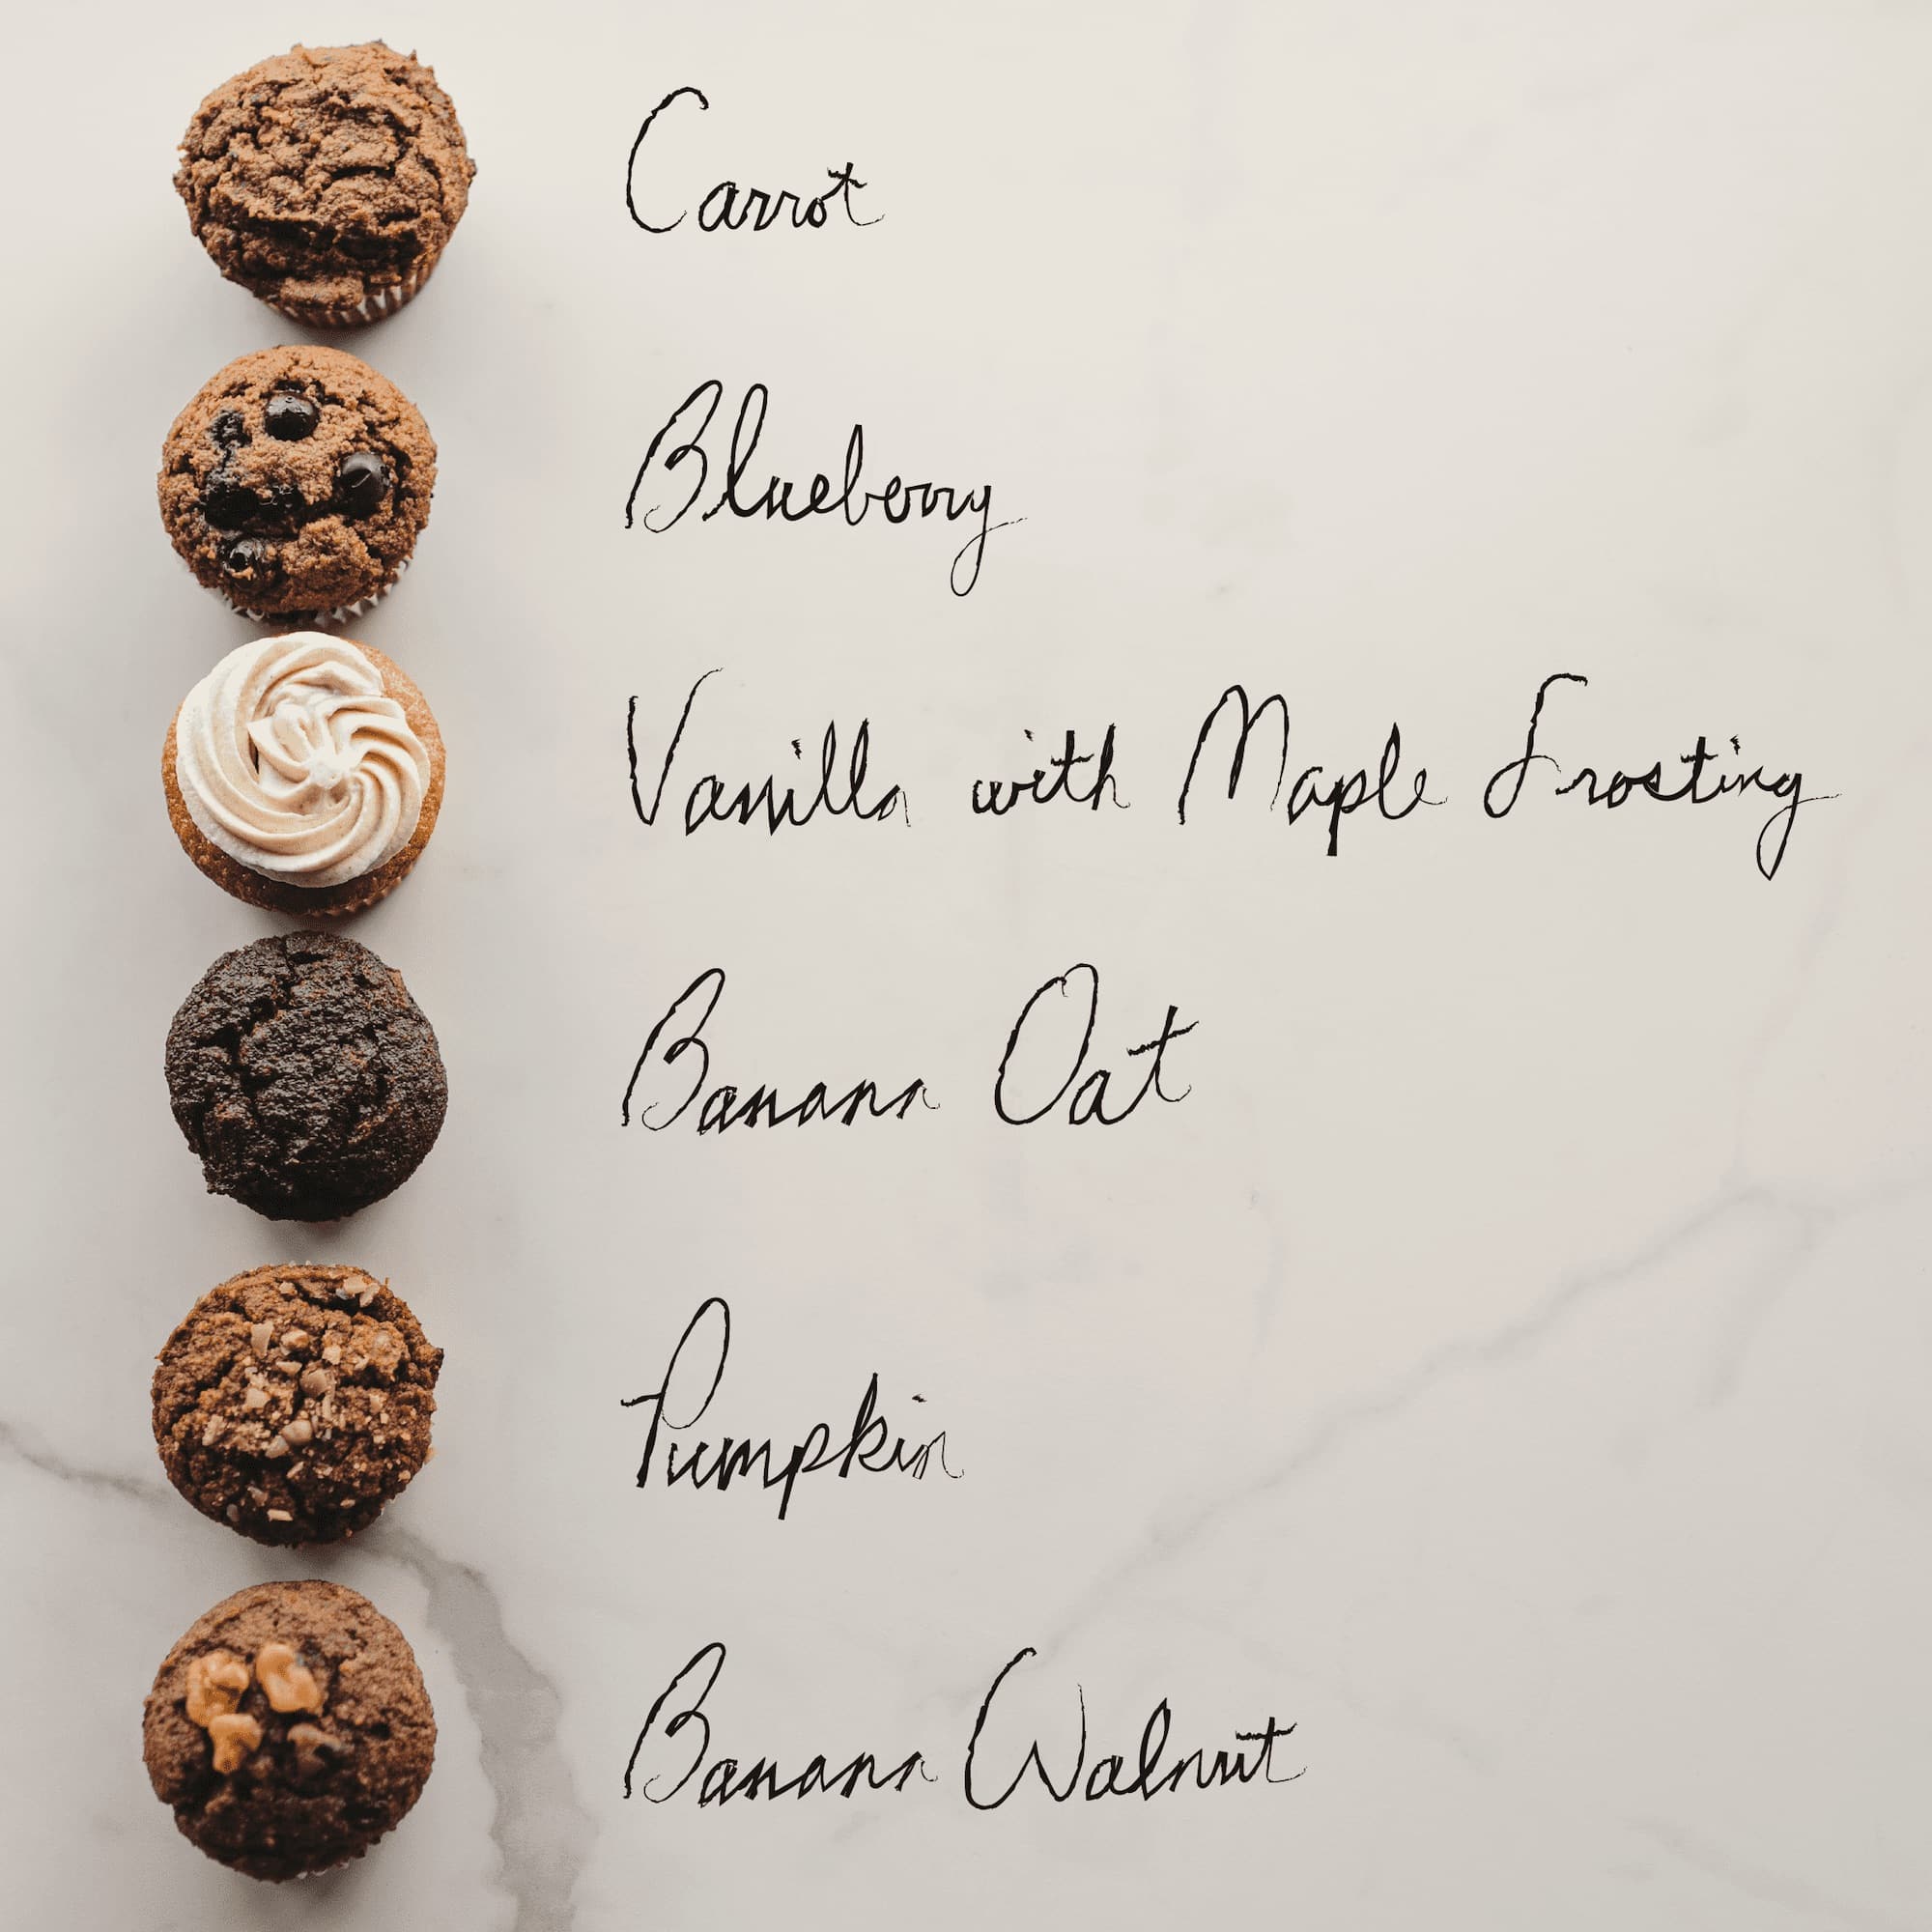 Carrot
Blueberry
Vanilla with Maple Frosting
Banana Oat
Pumpkin
Banana Walnut